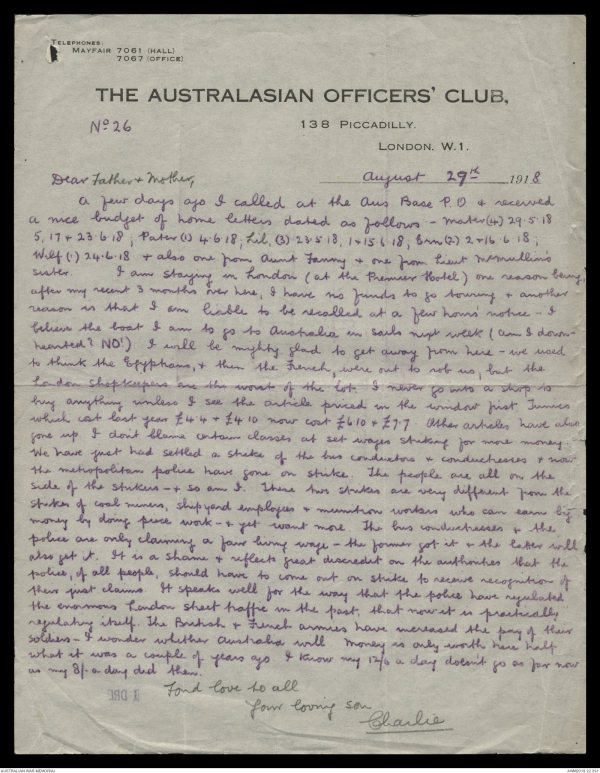 TELEPHONES:
MAYFAIR 7061 (HALL)
7067 (OFFICE)
THE AUSTRALASIAN OFFICERS' CLUB,
No 26
138 PICCADILLY.
LONDON. W.1.
Dear Father & Mother,
August 29th 1918
A few days ago I called at the Aus Base P.O & received
a nice budget of home letters dated as follows - Mater (4) 29.5.18
5, 17 & 23.6.18; Pater (1) 4.6.18; Lil, (3) 23.5.18, 1 & 15.6.18; Ern (2) 2 & 16.6.18;
Wilf (1) 24.6.18 & also one from Aunt Fanny & one from Lieut McMullin's
sister. I am staying in London (at the Premier Hotel) one reason being,
after my recent 3 months over here, I have no funds to go touring & another
reason is that I am liable to be recalled at a few hours' notice - I
believe the boat I am to go to Australia in sails next week (Am I down-
hearted? NO!) I will be mighty glad to get away from here - we used
to think the Egyptians, & then the French, were out to rob us, but the
London shopkeepers are the worst of the lot. I never go into a shop to
buy anything unless I see the article priced in the window first. Tunics
which cost last year £4.4 & £4.10 now cost £6.10 & £7.7. Other articles have also
gone up. I don't blame certain classes at set wages striking for more money.
We have just had settled a strike of the bus conductors & conductresses & now
the metropolitan police have gone on strike. The people are all on the
side of the strikers - & so am I. These two strikes are very different from the
strikes of coal miners, shipyard employees & munition workers who can earn big
money by doing piece work - & yet want more. The bus conductresses & the
police are only claiming a fair living wage - the former got it & the latter will
also get it. It is a shame & reflects great discredit on the authorities that the
police, of all people, should have to come out on strike to receive recognition of
their just claims. It speaks well for the way that the police have regulated
the enormous London street traffic in the past, that now it is practically
regulating itself. The British & French armies have increased the pay of their
soldiers - I wonder whether Australia will. Money is only worth here half
what it was a couple of years ago. I know my 12/6 a day doesn't go as far now
as my 8/- a day did then.
Fond love to all
Your loving son
Charlie
1 DEC
AUSTRALIAN WAR MEMORIAL